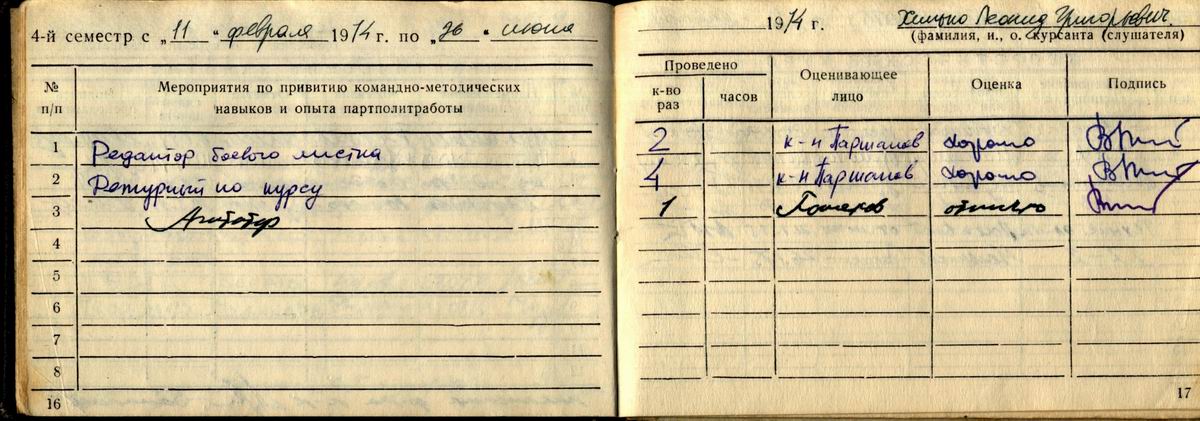 4-й семестр с „11“ февраля 1974 г. по „26“ июня 1974 г. Леонид Григорьевич
(фамилия, и., о. курсанта (слушателя)
№ п/п Мероприятия по привитию командно-методических навыков и опыта партполитработы Проведено к-во раз часов Оценивающее лицо Оценка Подпись
1 Редактор боевого листка 2 к-н Паршаков хорошо
2 Дежурный по курсу 4 к-н Паршаков хорошо
3 Агитатор 1 отлично
4
5
6
7
8
16 17